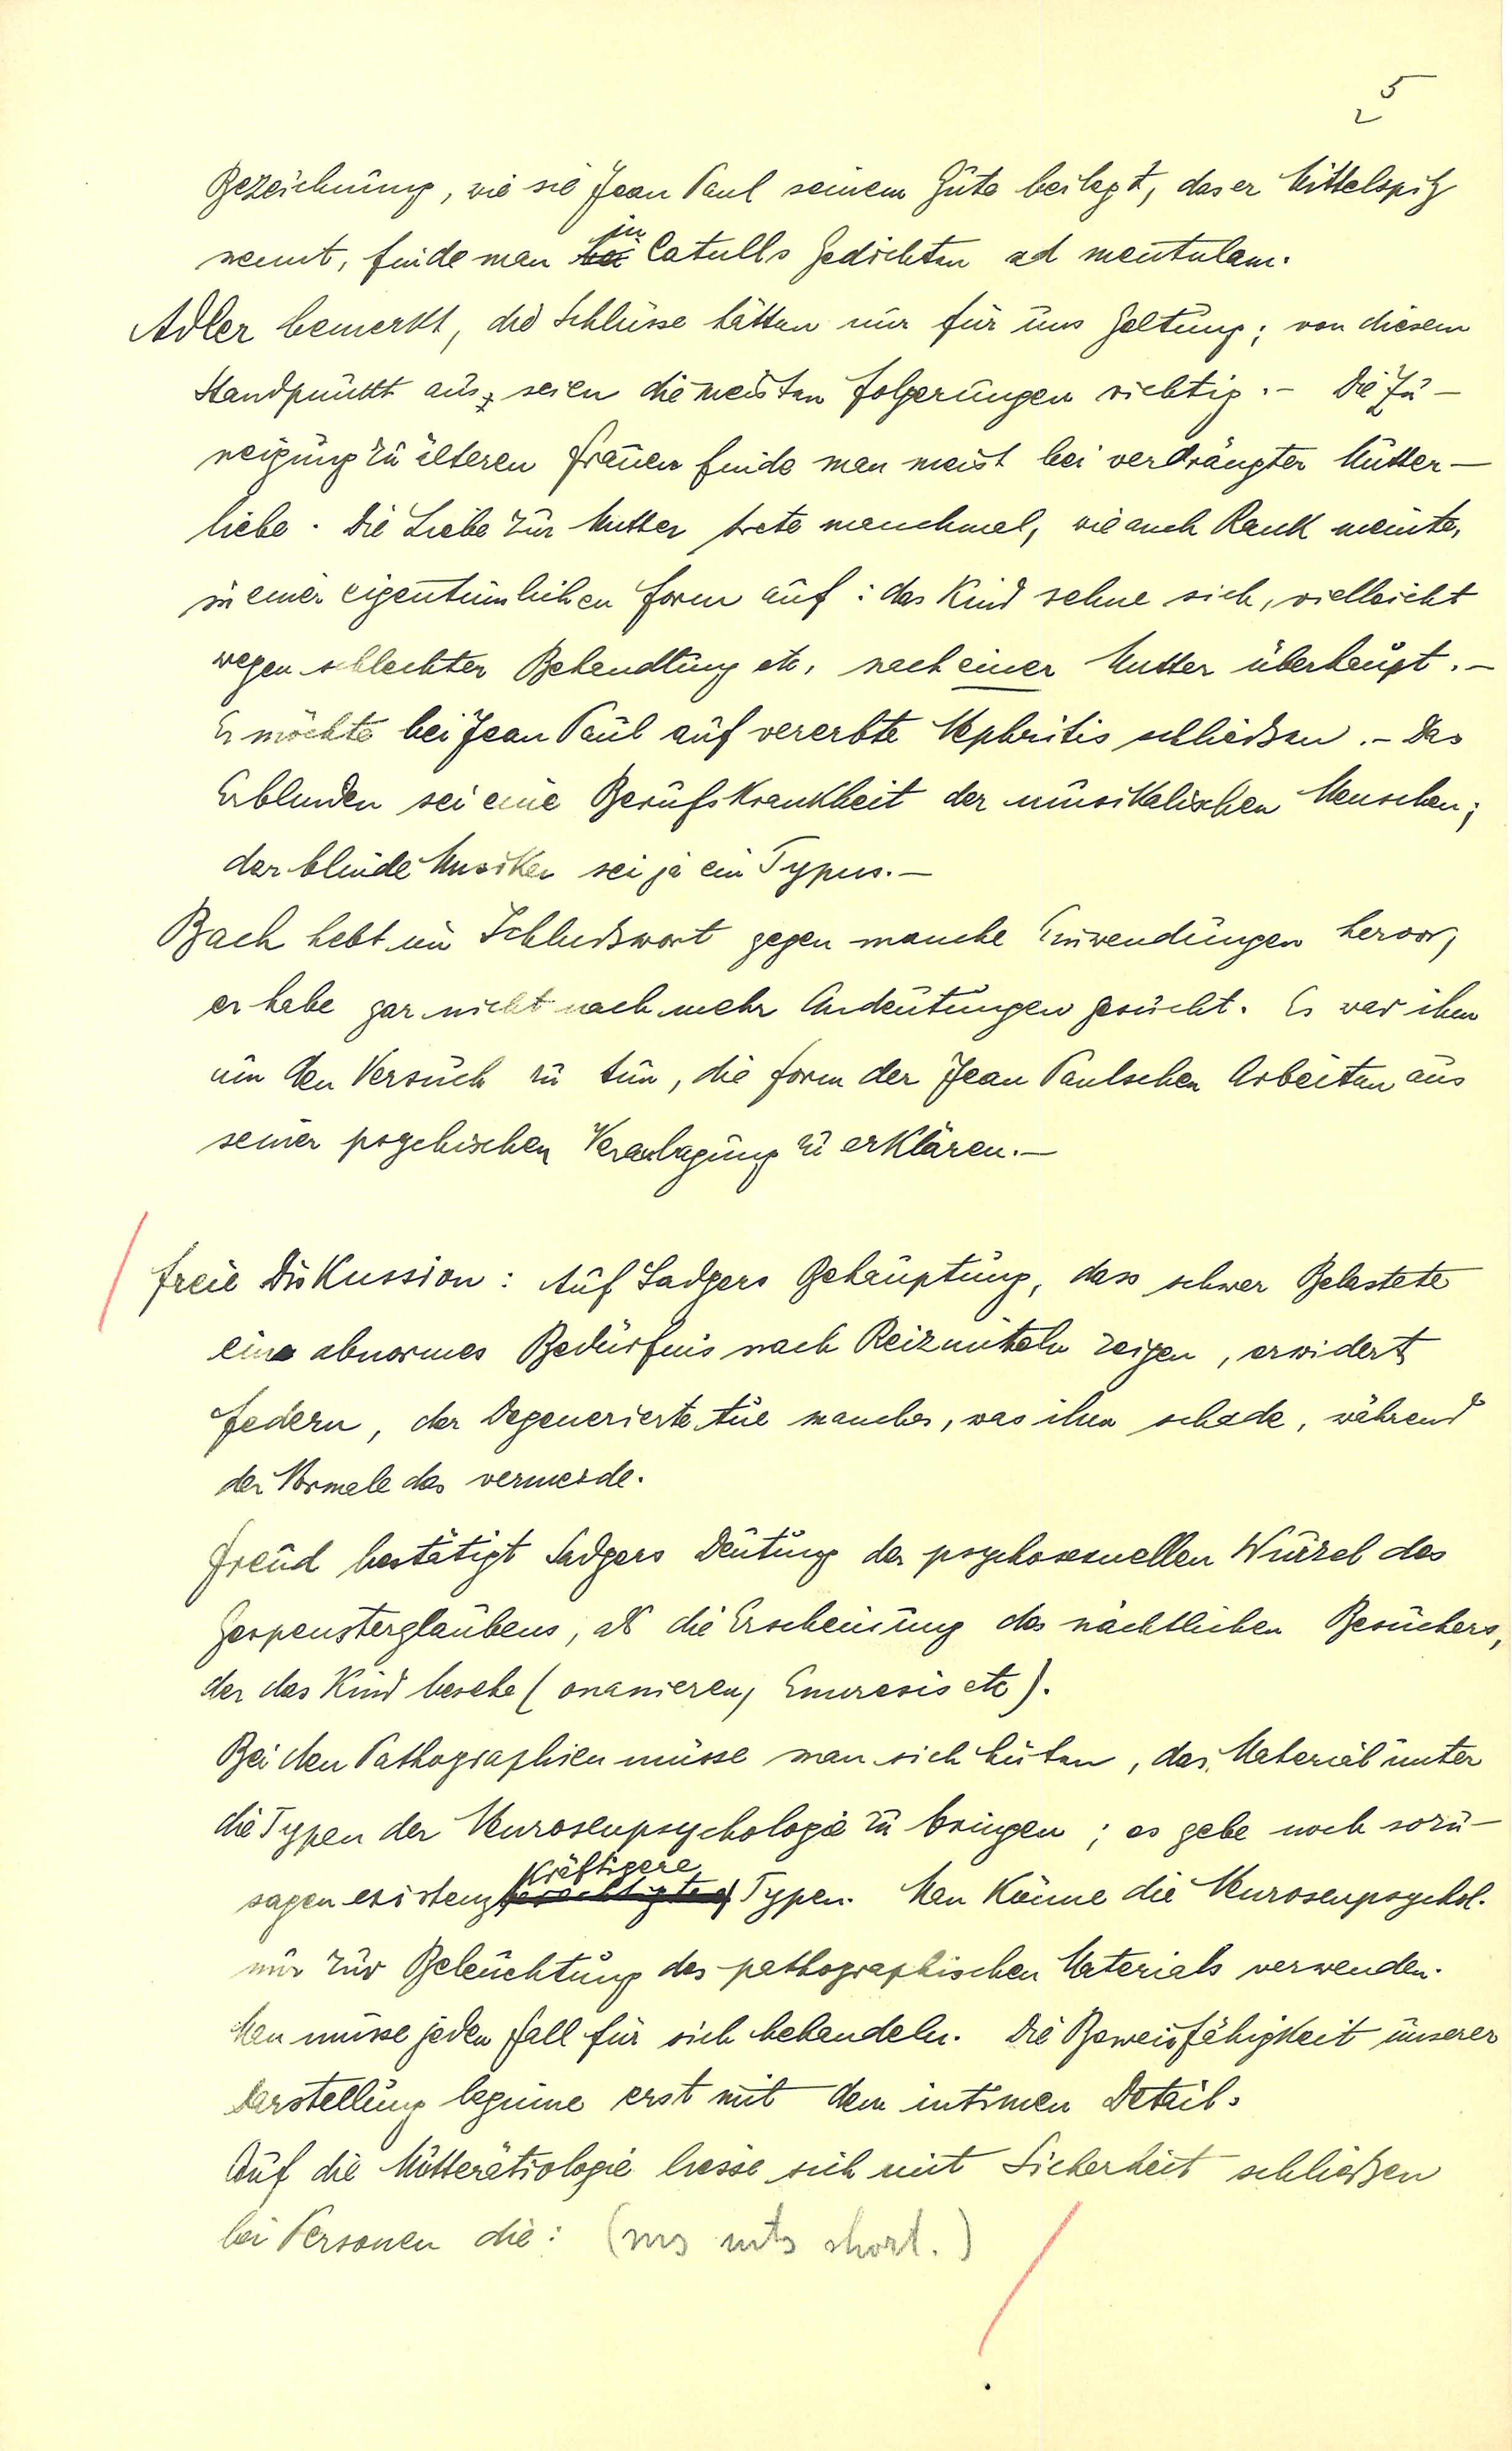 5
2
Bezeichnung, wie sie Jean Paul seinem Gute beilegt, das er Mittelspitz
nennt, finde man bei in Catulls Gedichten ad mentulam.
Adler bemerkt, die Schlüsse hätten nur für uns Geltung; von diesem
Standpunkt aus, seien die meisten Folgerungen richtig. – Die Zu–
neigung zu älteren Frauen finde man meist bei verdrängter Mutter–
liebe. Die Liebe zur Mutter trete manchmal, wie auch Rank meinte,
in einer eigentümlichen Form auf: das Kind sehne sich, vielleicht
wegen schlechter Behandlung etc, nach einer Mutter überhaupt. –
Er möchte bei Jean Paul auf vererbte Nephritis schließen. – Das
Erblinden sei eine Berufskrankheit der musikalischen Menschen;
der blinde Musiker sei ja ein Typus. –
Bach hebt im Schlußwort gegen manche Einwendungen hervor,
er habe gar nicht nach mehr Andeutungen gesucht. Es war ihm
um den Versuch zu tun, die Form der Jean Paulschen Arbeiten aus
seiner psychischen Veranlagung zu erklären. –
Freie Diskussion: Auf Sadgers Behauptung, dass schwer Belastete
ein abnormes Bedürfnis nach Reizmitteln zeigen, erwidert
Federn, der Degenerierte tue manches, was ihm schade, während
der Normale das vermeide.
Freud bestätigt Sadgers Deutung der psychosexuellen Wurzel des
Gespensterglaubens, als die Erscheinung des nächtlichen Besuchers,
der das Kind besehe (onanieren, Enuresis etc).
Bei den Pathographien müsse man sich hüten, das Material unter
die Typen der Neurosenpsychologie zu bringen; es gebe noch sozu–
sagen existenzkräftigere Typen. Man könne die Neurosenpsychol.
nur zur Beleuchtung des pathographischen Materials verwenden.
Man müsse jeden Fall für sich behandeln. Die Beweisfähigkeit unserer
Darstellung beginne erst mit dem intimen Detail.
Auf die Mutterätiologie liesse sich mit Sicherheit schließen
bei Personen die: (ms short.)